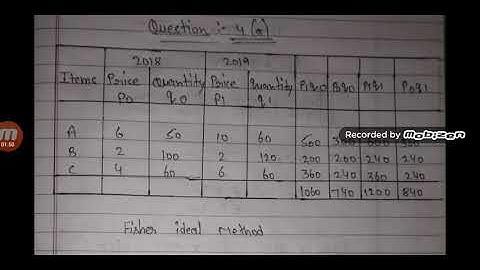 Question :- 4 (a)
2018 2019
Items Price Quantity Price Quantity P1q0 P0q0 P1q1 P0q1
P0 q0 P1 q1
A 6 50 10 60 500
B 2 100 2 120 200 200 240 240
C 4 60 6 60 360 240 360 240
1060 740 1200 840
Fisher ideal Method
Recorded by Mobizen
01:50